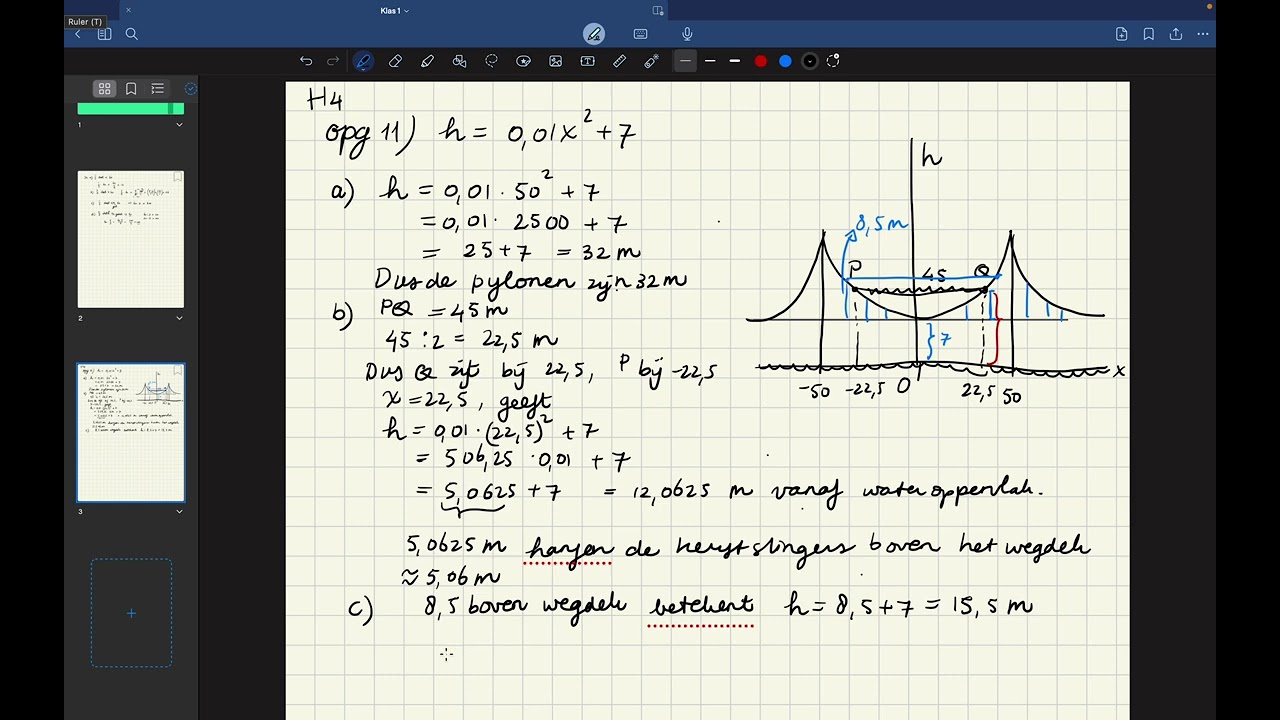 Klas 1
Ruler (T)
1
2
3
H4
opg 11) h = 0,01x² + 7
a) h = 0,01 · 50² + 7
= 0,01 · 2500 + 7
= 25 + 7 = 32 m
Dus de pylonen zijn 32 m
b) PQ = 45 m
45 : 2 = 22,5 m
Dus Q zit bij 22,5, P bij -22,5
x = 22,5, geeft
h = 0,01 · (22,5)² + 7
= 506,25 · 0,01 + 7
= 5,0625 + 7 = 12,0625 m vanaf wateroppervlak.
5,0625 m hangen de kerstslingers boven het wegdek
≈ 5,06 m
c) 8,5 boven wegdek betekent h = 8,5 + 7 = 15,5 m
h
8,5 m
P 45 Q
7
x
-50 -22,5 0 22,5 50